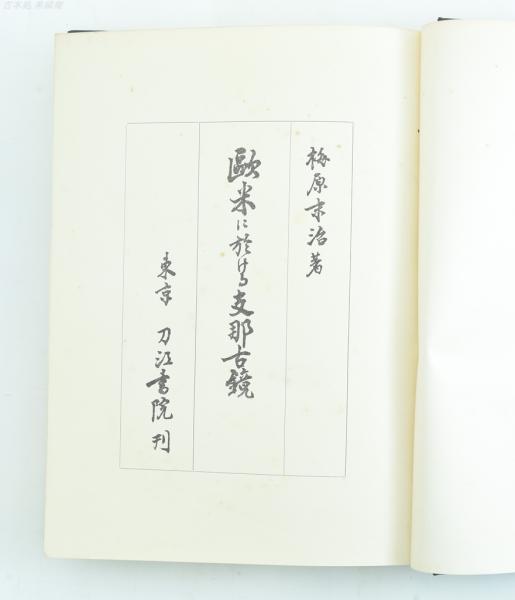 梅原末治著
歐米に於ける支那古鏡
東京 刀江書院刊